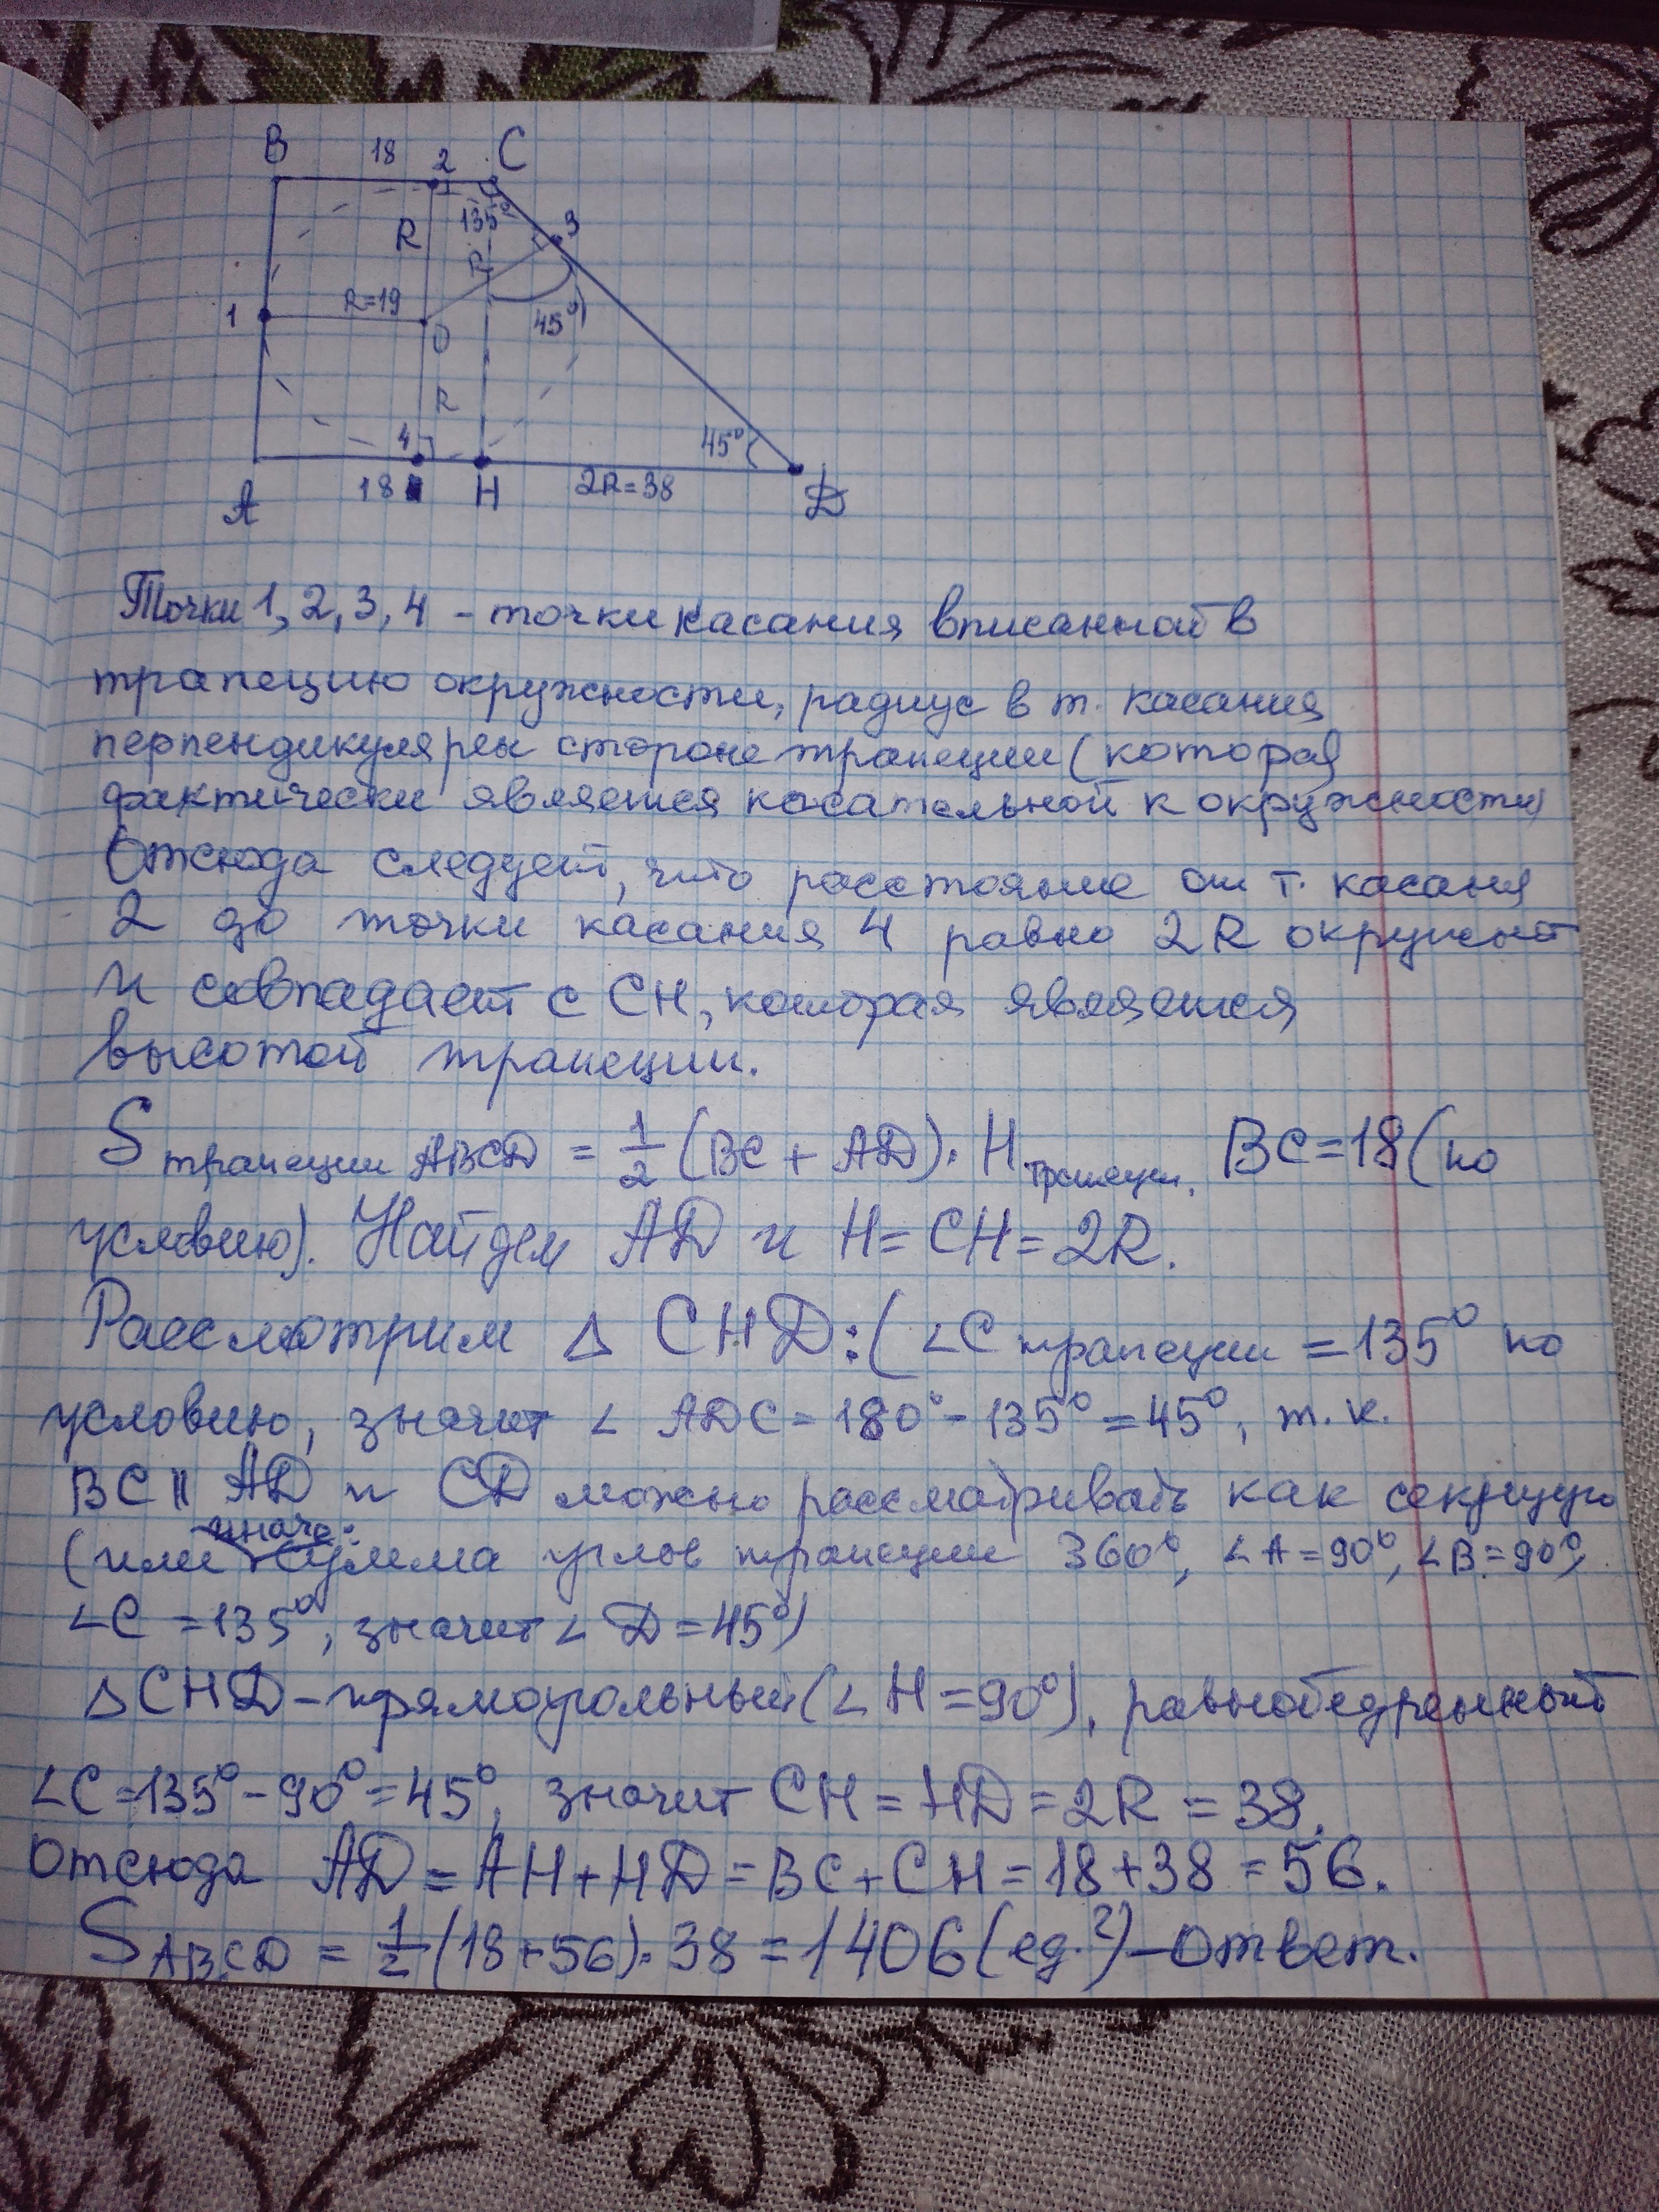 B 18 2 C
135° 3
R R
1 R=19 O 45°
R
4 45°
A 18 H 2R=38 D
Точки 1, 2, 3, 4 – точки касания вписанной в
трапецию окружности, радиус в т. касания
перпендикулярен стороне трапеции (которая
фактически является касательной к окружности)
Отсюда следует, что расстояние от т. касаня
2 до точки касания 4 равно 2R окружност
и совпадает с CH, которая является
высотой трапеции.
S трапеции ABCD = 1/2 (BC + AD) · H трапеции. BC = 18 (по
условию). Найдем AD и H = CH = 2R.
Рассмотрим Δ CHD: (∠C трапеции = 135° по
условию, значит ∠ ADC = 180° – 135° = 45°, т. к.
BC || AD и CD можно рассматривать как секущую
(или иначе: сумма углов трапеции 360°, ∠A = 90°, ∠B = 90°,
∠C = 135°, значит ∠ D = 45°)
Δ CHD – прямоугольный (∠ H = 90°), равнобедренный
∠C = 135° – 90° = 45°, значит CH = HD = 2R = 38.
Отсюда AD = AH + HD = BC + CH = 18 + 38 = 56.
S ABCD = 1/2 (18 + 56) · 38 = 1406 (ед.²) – ответ.